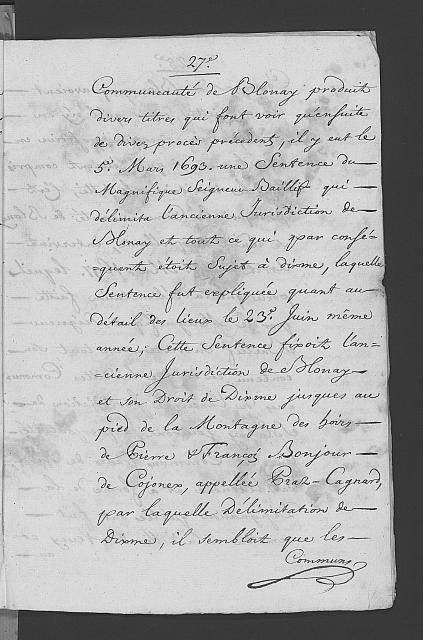 27.e
Communeauté de Blonay produit
divers titres qui font voir qu'ensuite
de divers procès précédent, il y eut le
5.e Mars 1693. une Sentence du
Magnifique Seigneur Baillif qui
délimita l'ancienne Jurisdiction de
Blonay et tout ce qui par consé=
=quent étoit Sujet à dixme, laquelle
Sentence fut expliquée quant au
détail des lieux le 23.e Juin même
année; Cette Sentence fixoit l'an=
=cienne Jurisdiction de Blonay
et son Droit de Dixme jusques au
pied de la Montagne des hoirs
de Pierre & François Bonjour
de Cojonex, appellée Praz-Cagnard,
par laquelle Délimitation de
Dixme, il sembloit que les
Communs